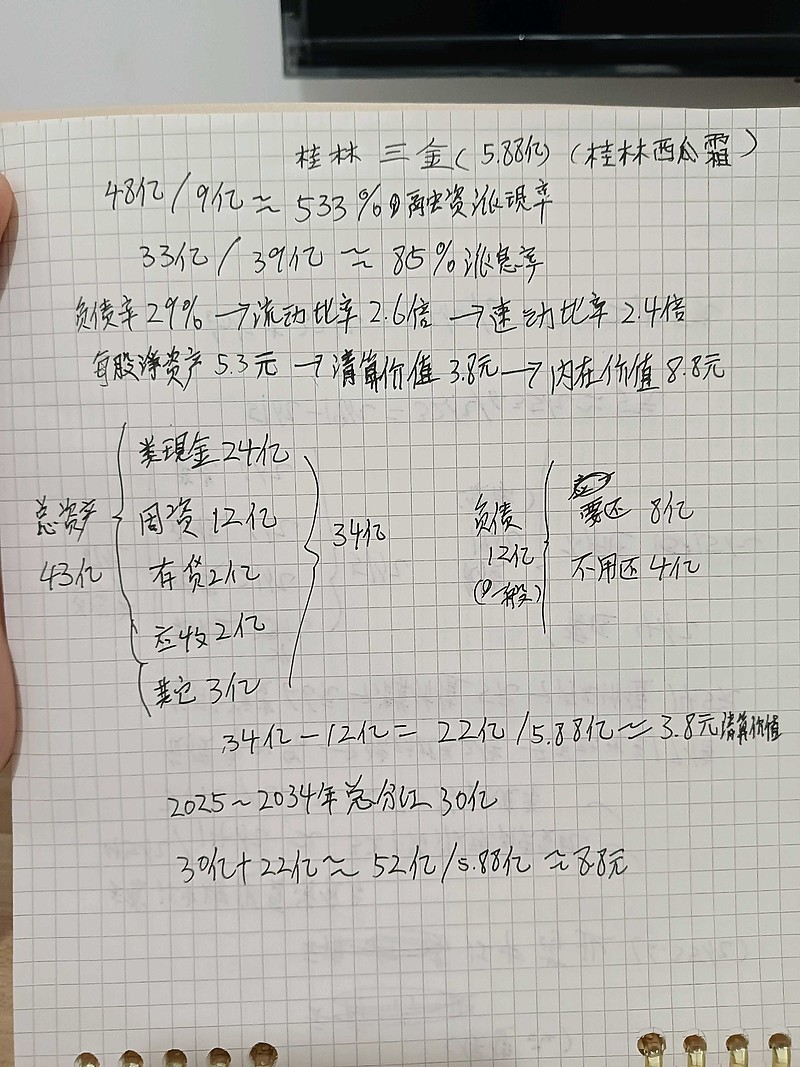 桂林三金(5.88亿)(桂林西瓜霜)
48亿/9亿≈533%融资派现率
33亿/39亿≈85%派息率
负债率29%→流动比率2.6倍→速动比率2.4倍
每股净资产5.3元→清算价值3.8元→内在价值8.8元
总资产
43亿
类现金24亿
固资12亿
存货2亿
应收2亿
其它3亿
34亿
负债
12亿
(一般)
要还 8亿
不用还4亿
34亿-12亿=22亿/5.88亿≈3.8元清算价值
2025~2034年总分红30亿
30亿+22亿≈52亿/5.88亿≈8.8元